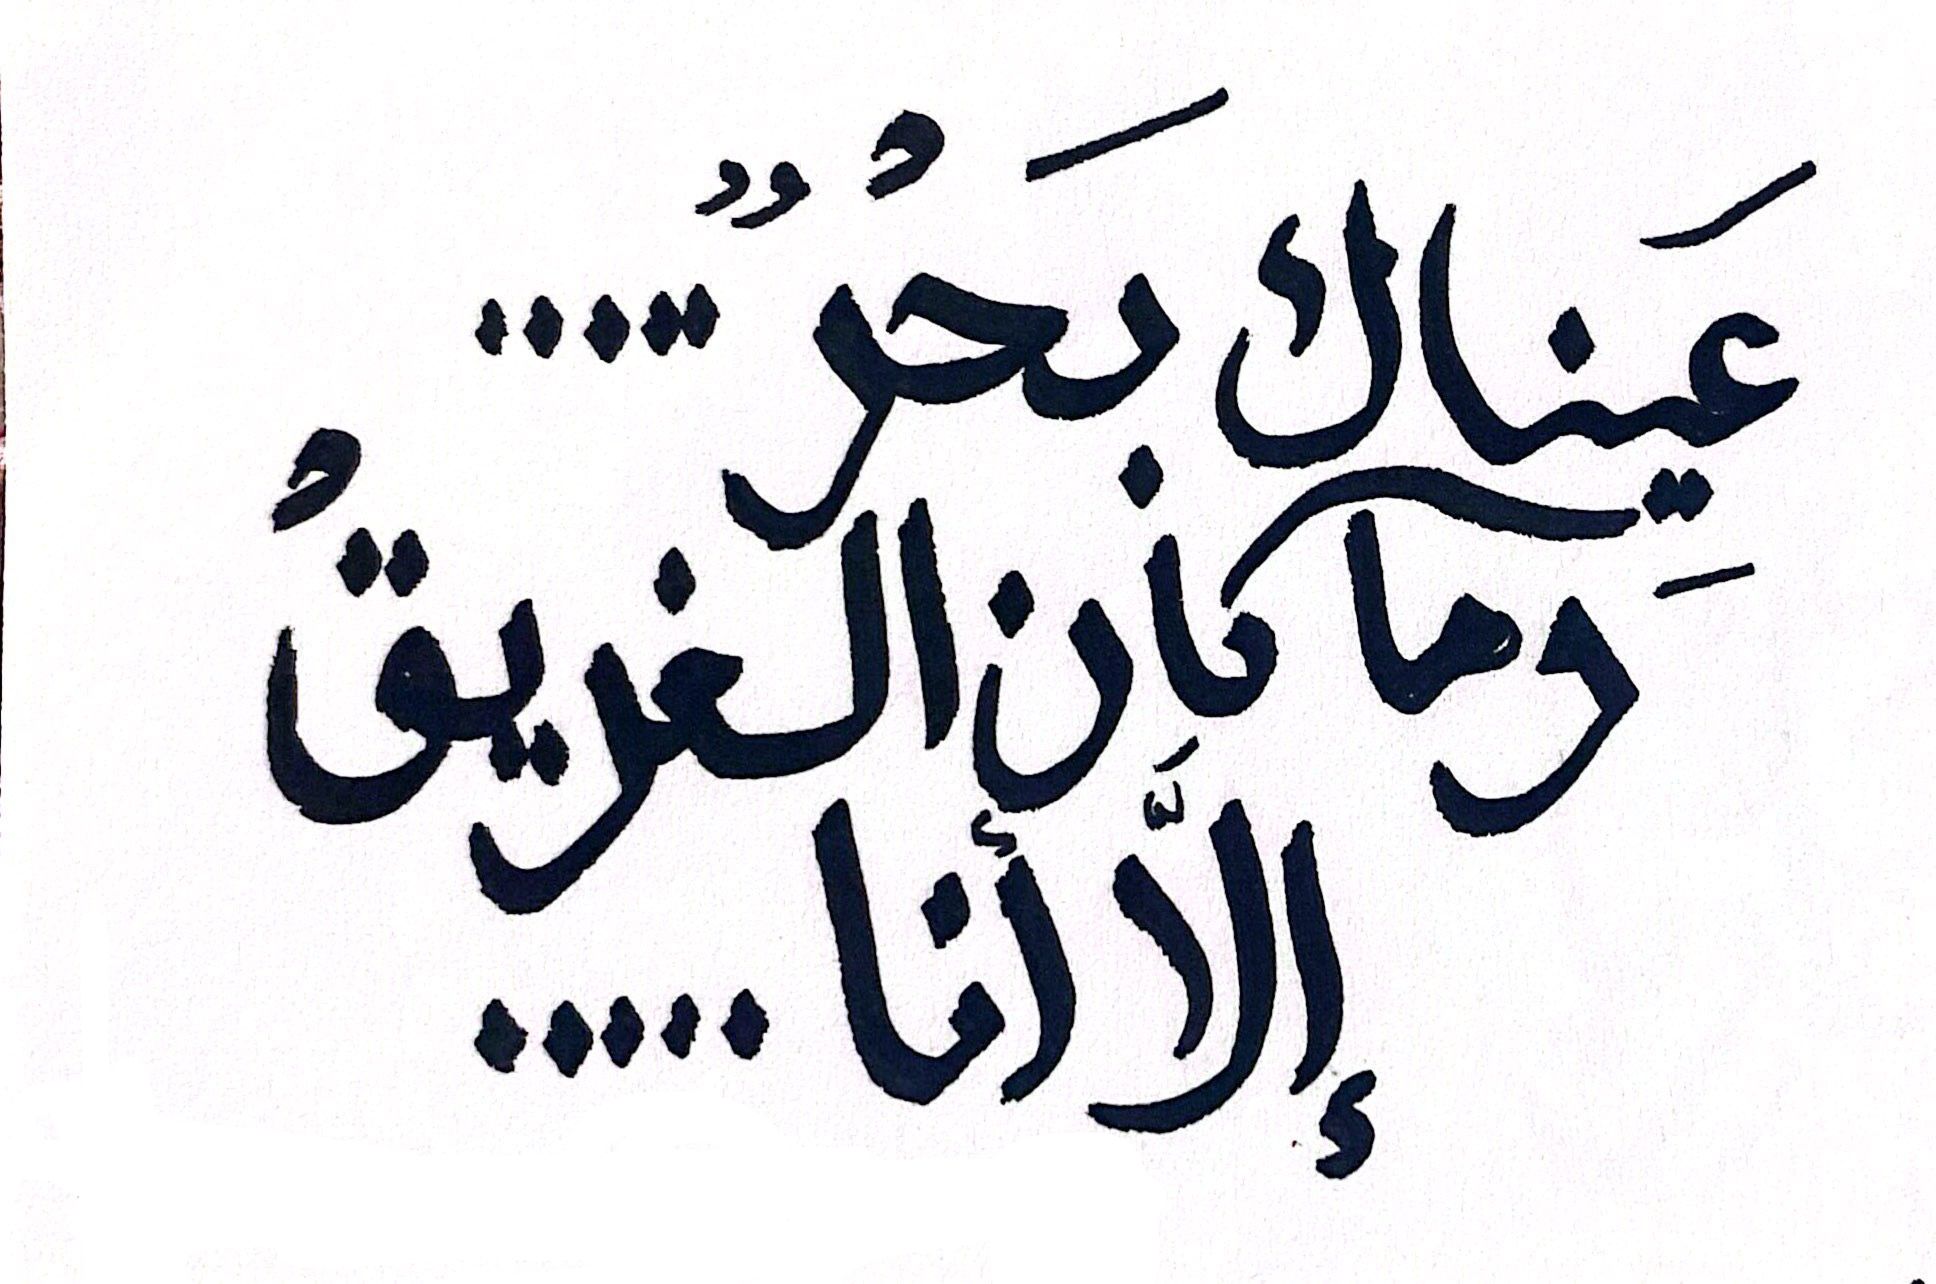 عَيناك بَحرٌ .....
وما كان الغريقُ
إلَّا أنا .....